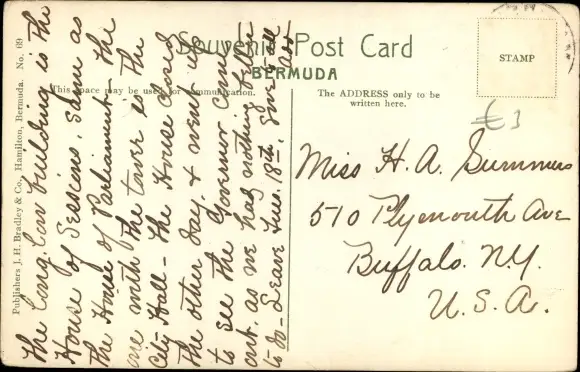 Souvenir Post Card
BERMUDA
This space may be used for communication.
The ADDRESS only to be
written here.
STAMP
Publishers J. H. Bradley & Co., Hamilton, Bermuda. No. 69
€3
The long. low building is the
House of Sessions. same as
the House of Parliament - the
one with the tower is the
City Hall - The House closed
the other day & went up
to see the Governor come
out, as we had nothing better
to do - Leave Tues. 18th.
Miss H. A. Summers
510 Plymouth Ave
Buffalo. N.Y.
U.S.A.